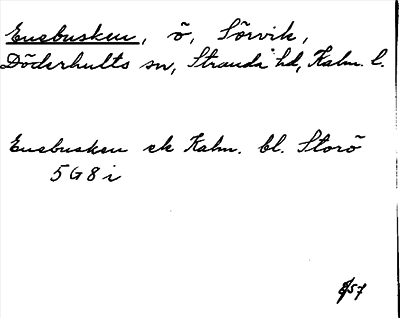 Enebusken, ö, Sörvik,
Döderhults sn, Stranda hd, Kalm. l.
Enebusken ek Kalm. bl. Storö
5G8i